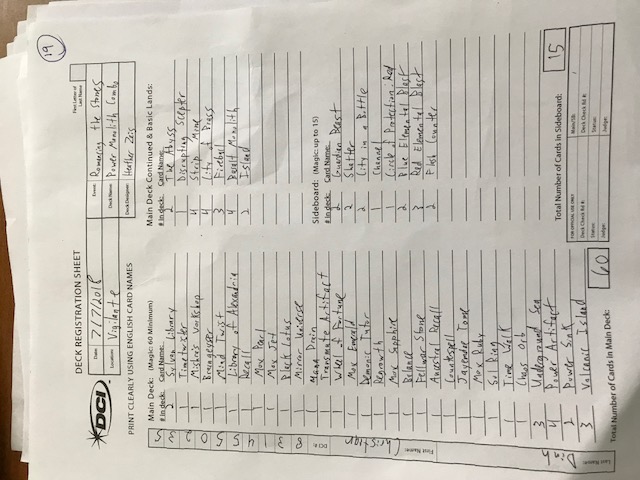 19
DECK REGISTRATION SHEET
First Letter of
Last Name
DCI
Date: 7/7/2018
Event: Romancing the Stones
Location: Vigilante
Deck Name: Power Monolith Combo
Deck Designer: Heather Zeis
PRINT CLEARLY USING ENGLISH CARD NAMES
Main Deck: (Magic: 60 Minimum)
# in deck: Card Name:
2 Sylvan Library
1 Timetwister
1 Mishra's Workshop
1 Braingeyser
1 Mind Twist
1 Library of Alexandria
1 Recall
1 Mox Pearl
1 Mox Jet
1 Black Lotus
1 Mirror Universe
1 Mana Drain
1 Transmute Artifact
1 Wheel of Fortune
1 Mox Emerald
1 Demonic Tutor
1 Regrowth
1 Mox Sapphire
1 Balance
1 Fellwar Stone
1 Ancestral Recall
1 Counterspell
1 Jayemdae Tome
1 Mox Ruby
1 Sol Ring
1 Time Walk
1 Chaos Orb
3 Underground Sea
4 Power Artifact
2 Power Sink
3 Volcanic Island
Total Number of Cards in Main Deck: 60
Main Deck Continued & Basic Lands:
# in deck: Card Name:
2 The Abyss
1 Disrupting Scepter
4 Strip Mine
4 City of Brass
3 Fireball
4 Basalt Monolith
2 Island
Sideboard: (Magic: up to 15)
# in deck: Card Name:
2 Guardian Beast
2 Shatter
2 City in a Bottle
1 Channel
1 Circle of Protection: Red
2 Blue Elemental Blast
3 Red Elemental Blast
2 Flash Counter
Total Number of Cards in Sideboard: 15
FOR OFFICIAL USE ONLY
Main/SB:
Deck Check Rd #:
Deck Check Rd #:
Status:
Status:
Judge:
Judge:
DCI #: 8 3 1 4 5 5 0 2 3 5
First Name: Christian
Last Name: Dinh